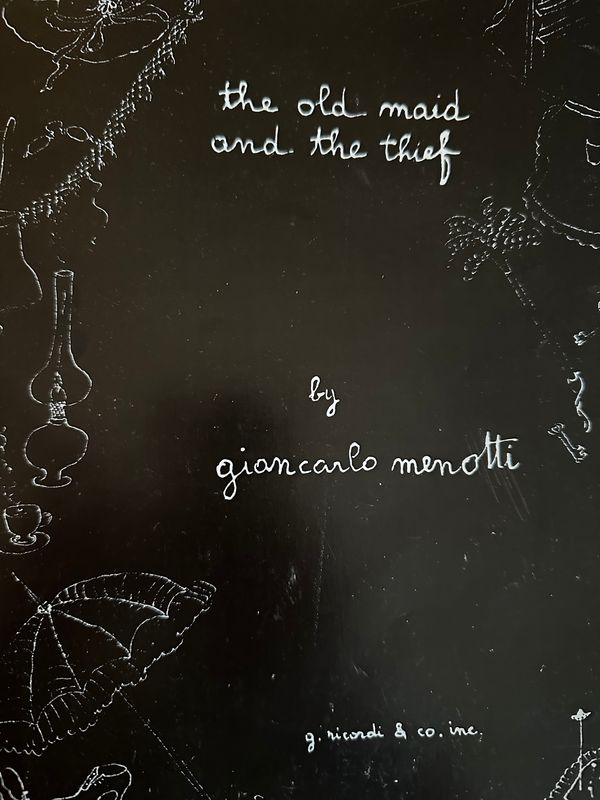 the old maid
and. the thief
by
giancarlo menotti
g. ricordi & co. inc.